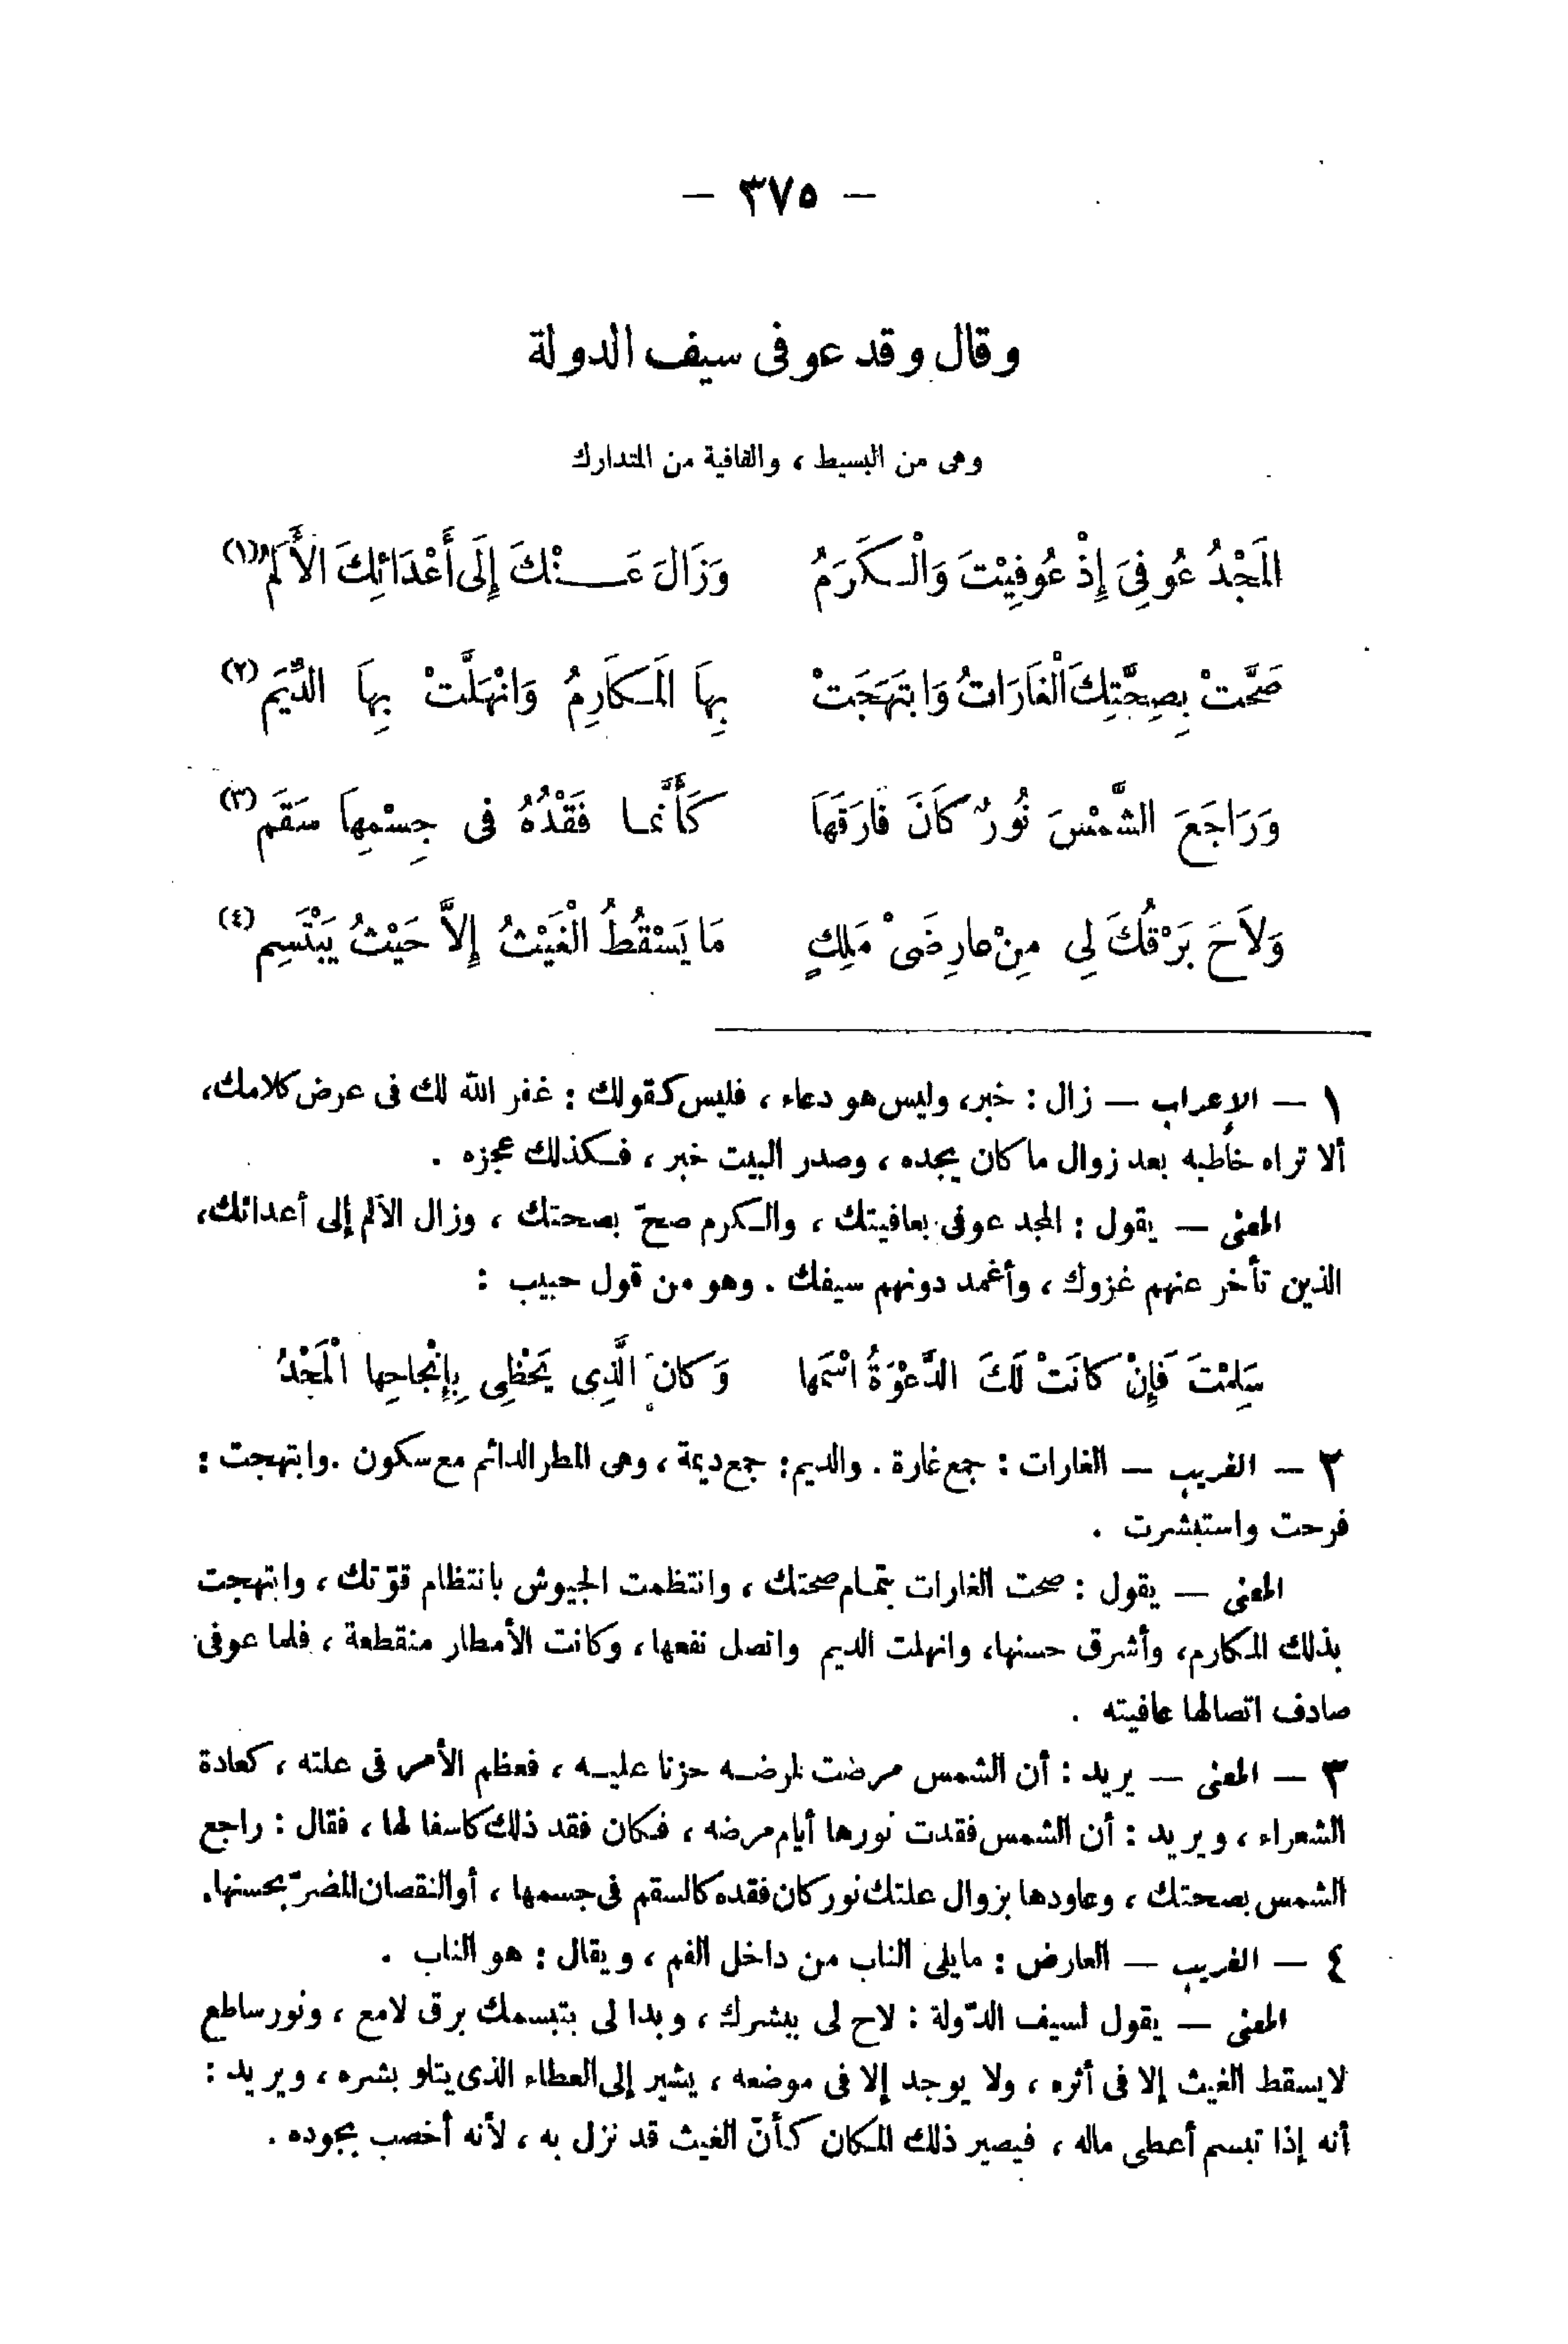 — ٣٧٥ —
وقال وقد عوفى سيف الدولة
وهى من البسيط ، والقافية من المتدارك
الْمَجْدُ عُوفِىَ إِذْ عُوفِيْتَ وَالْكَرَمُ وَزَالَ عَنْكَ إِلَى أَعْدَائِكَ الأَلَمُ (١)
صَحَّتْ بِصِحَّتِكَ الْغَارَاتُ وَابْتَهَجَتْ بِهَا الْمَكَارِمُ وَانْهَلَّتْ بِهَا الدِّيَمُ (٢)
وَرَاجَعَ الشَّمْسَ نُورٌ كَانَ فَارَقَهَا كَأَنَّمَا فَقْدُهُ فى جِسْمِهَا سَقَمُ (٣)
وَلاَحَ بَرْقُكَ لِى مِنْ عارِضَىْ مَلِكٍ مَا يَسْقُطُ الْغَيْثُ إِلاَّ حَيْثُ يَبْتَسِمُ (٤)
١ — الإعراب — زال : خبر، وليس هو دعاء ، فليس كقولك : غفر الله لك فى عرض كلامك،
ألا تراه خاطبه بعد زوال ما كان يجده ، وصدر البيت خبر ، فكذلك عجزه .
المعنى — يقول : المجد عوفى بعافيتك ، والكرم صحّ بصحتك ، وزال الألم إلى أعدائك،
الذين تأخر عنهم غزوك ، وأغمد دونهم سيفك . وهو من قول حبيب :
سَلِمْتَ فَإِنْ كانَتْ لَكَ الدَّعْوَةُ اسْمَها وَكانَ الَّذِى يَحْظِى بِإِنْجاحِها الْمَجْدُ
٢ — الغريب — الغارات : جمع غارة . والديم : جمع ديمة ، وهى المطر الدائم مع سكون . وابتهجت :
فرحت واستبشرت .
المعنى — يقول : صحت الغارات بتمام صحتك ، وانتظمت الجيوش بانتظام قوّتك ، وابتهجت
بذلك المكارم، وأشرق حسنها، وانهلت الديم واتصل نفعها، وكانت الأمطار منقطعة ، فلما عوفى
صادف اتصالها عافيته .
٣ — المعنى — يريد : أن الشمس مرضت لمرضه حزنا عليه ، فعظم الأمر فى علته ، كعادة
الشعراء ، ويريد : أن الشمس فقدت نورها أيام مرضه ، فكان فقد ذلك كاسفا لها ، فقال : راجع
الشمس بصحتك ، وعاودها بزوال علتك نور كان فقده كالسقم فى جسمها ، أو النقصان المضرّ بحسنها.
٤ — الغريب — العارض : مايلى الناب من داخل الفم ، ويقال : هو الناب .
المعنى — يقول لسيف الدّولة : لاح لى ببشرك ، وبدا لى بتبسمك برق لامع ، ونور ساطع
لايسقط الغيث إلا فى أثره ، ولا يوجد إلا فى موضعه ، يشير إلى العطاء الذى يتلو بشره ، ويريد :
أنه إذا تبسم أعطى ماله ، فيصير ذلك المكان كأنّ الغيث قد نزل به ، لأنه أخصب بجوده .